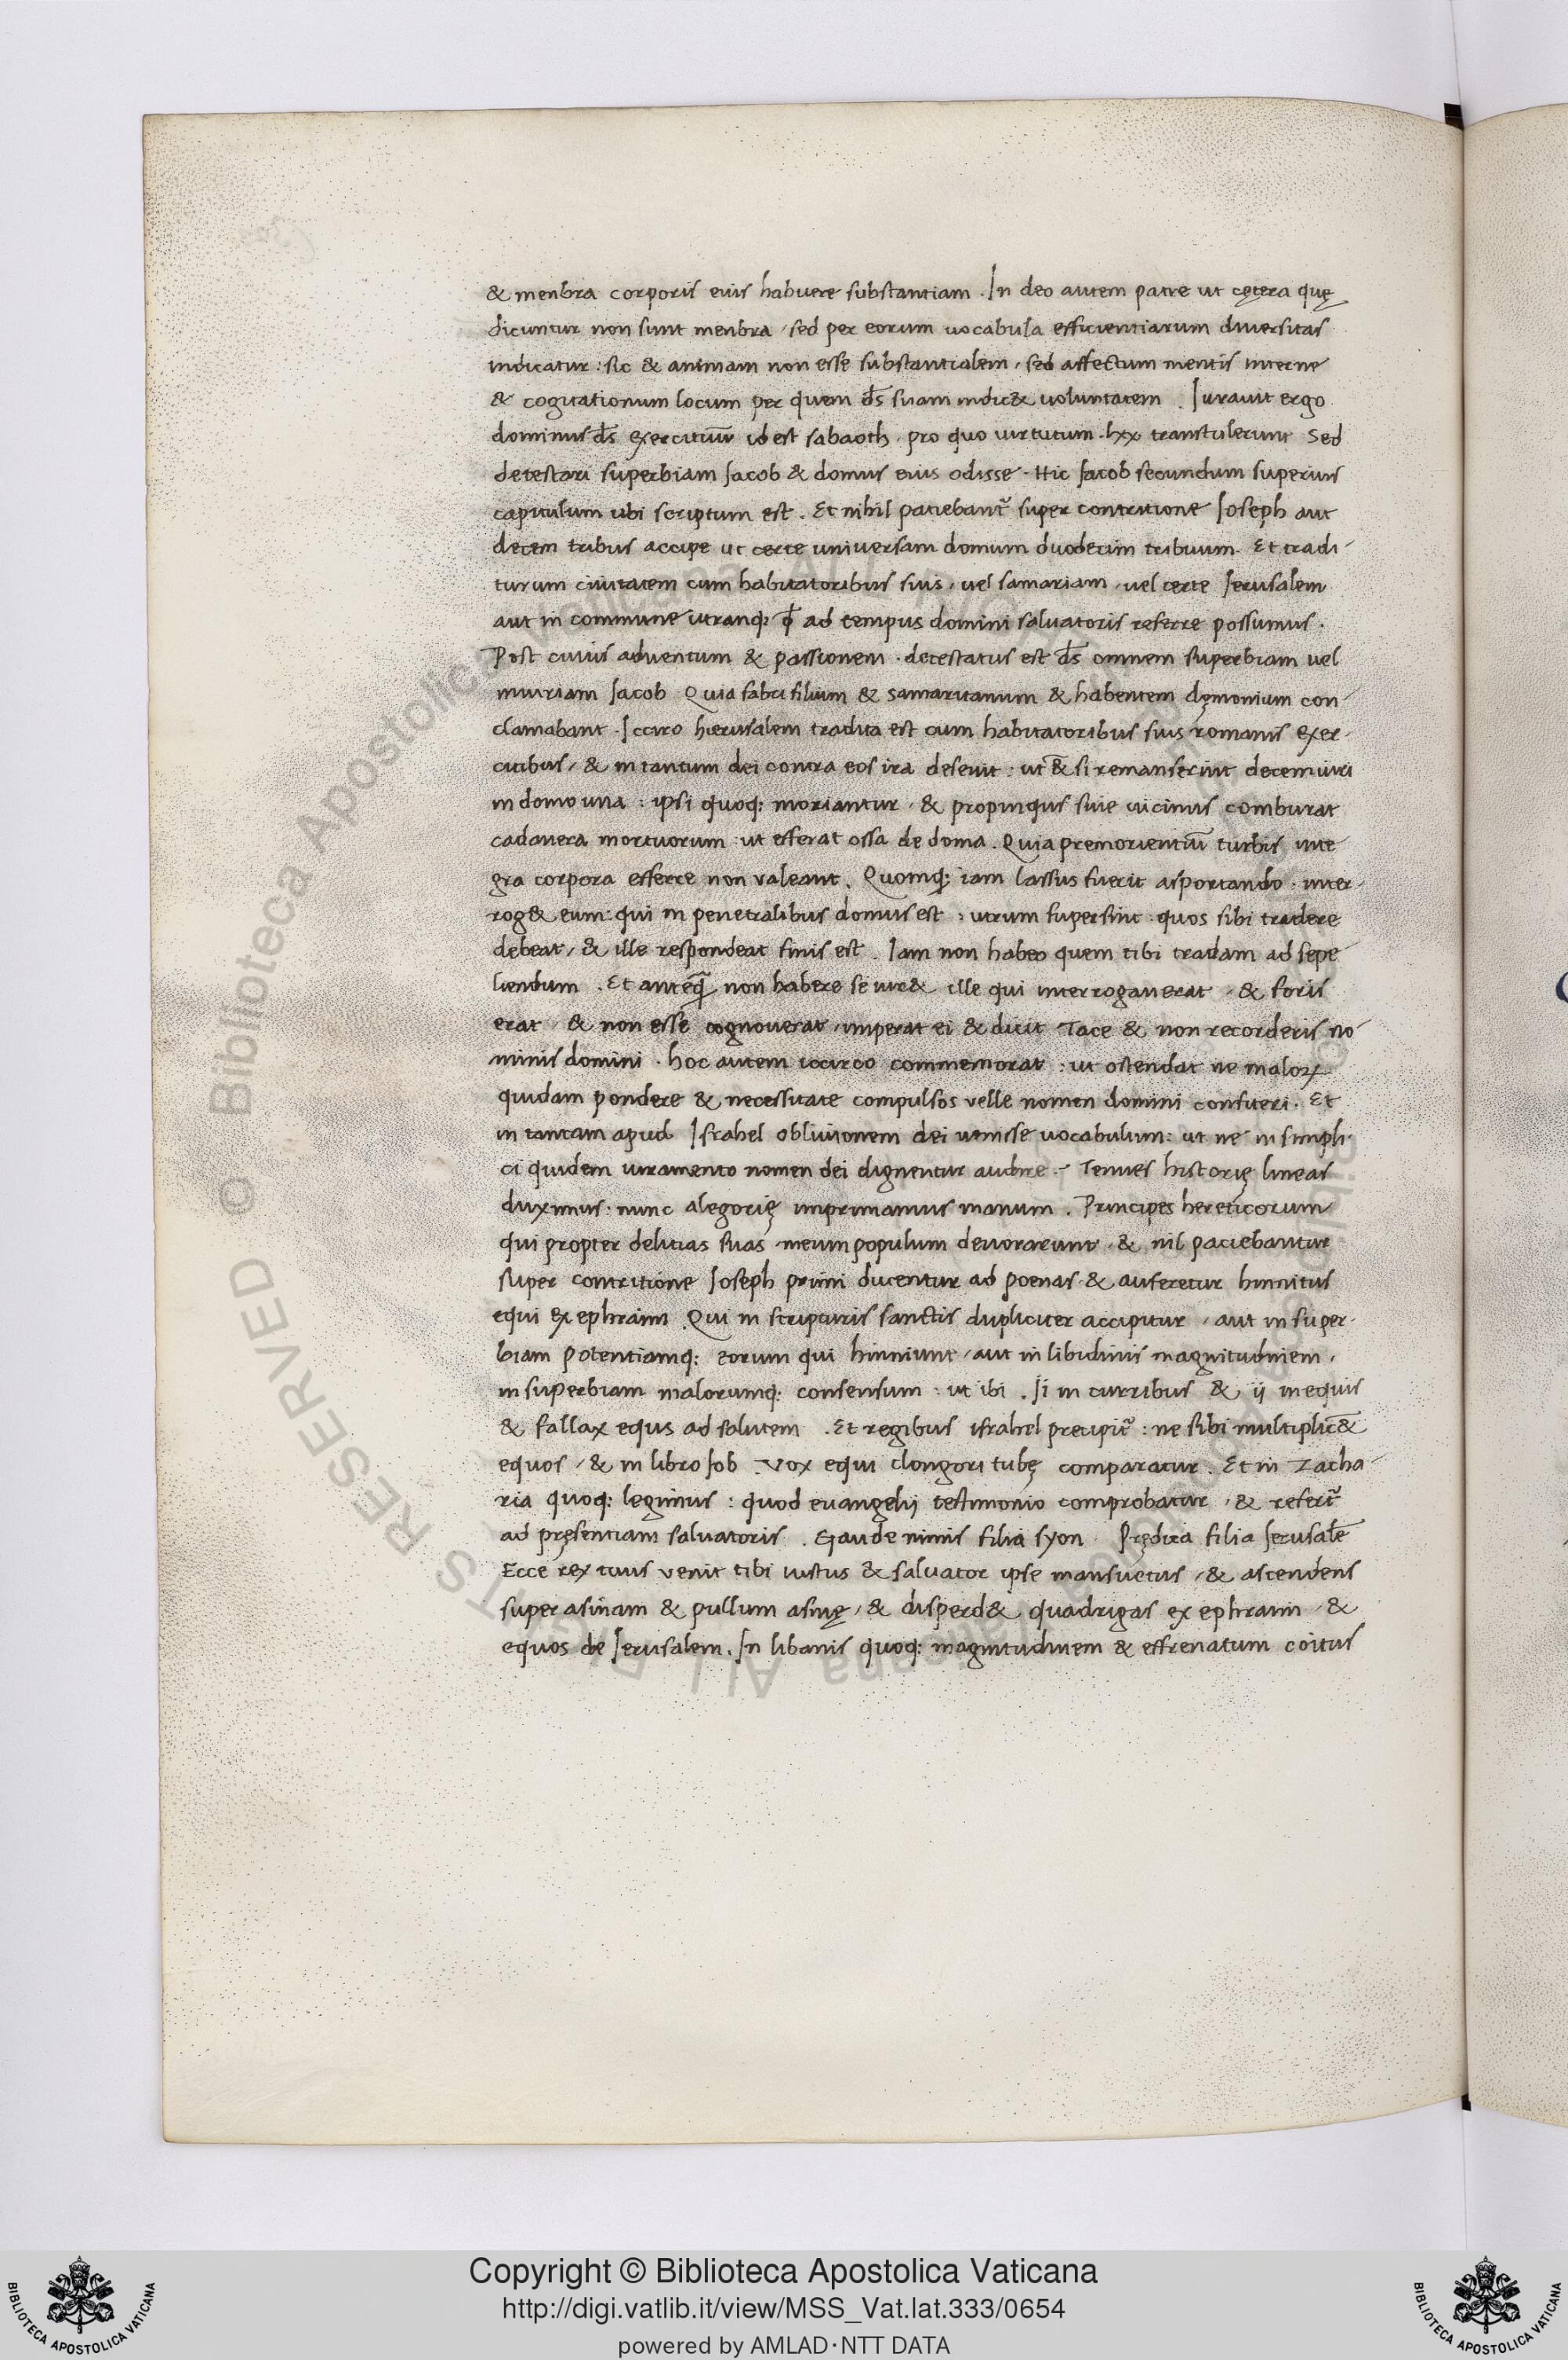 & menbra corporis eius habuere substantiam. In deo autem patre ut cętera quę
dicuntur non sunt menbra, sed per eorum uocabula efficientiarum diuersitas
indicatur: sic & animam non esse substantialem, sed affectum mentis interne
& cogitationum locum per quem d̅s suam indic& uoluntatem. Iurauit ergo
dominus d̅s exercituū id est sabaoth, pro quo uirtutum .lxx. transtulerunt Sed
detestari superbiam Iacob & domus eius odisse. Hic Iacob secundum superius
capitulum ubi scriptum est. Et nihil patiebant᷑ super contritione Ioseph aut
decem tribus accipe ut certe universam domum duodecim tribuum. Et tradi-
turum ciuitatem cum habitatoribus suis, uel samariam, uel certe Ierusalem
aut in commune utranq; ꝙ ad tempus domini saluatoris referre possumus.
Post cuius aduentum & passionem. detestatus est d̅s omnem superbiam uel
iniuriam Iacob Quia fabri filium & samaritanum & habentem dęmonium con-
clamabant. Iccirco hierusalem tradita est cum habitatoribus suis romanis exer-
citibus, & in tantum dei contra eos ira deseuit: ut & si remanserint decem uiri
in domo una: ipsi quoq; moriantur, & propinquus siue uicinus comburat
cadauera mortuorum ut efferat ossa de doma. Quia premorientiū turbis inte
gra corpora efferre non valeant. Quomq; iam lassus fuerit asportando, inter-
rog& eum: qui in penetralibus domus est, utrum supersint quos sibi tradere
debeat, & ille respondeat finis est. Iam non habeo quem tibi tradam ad sepe
liendum. Et anteq̄ non habere se iur& ille qui interrogauerat, & foris
erat, & non esse cognouerat, imperat ei & dicit Tace & non recorderis no-
minis domini. hoc autem iccirco commemorat: ut ostendat ne maloꝝ
quidam pondere & necessitate compulsos velle nomen domini confiteri. Et
in tantam apud Israhel obliuionem dei uenisse uocabulum: ut ne in simpli-
ci quidem iuramento nomen dei dignentur audire.- Tenues historię lineas
duximus: nunc alegorię imprimamus manum. Principes hereticorum
qui propter delitias suas meum populum deuorarunt, & nil patiebantur
super contritione Ioseph primi ducentur ad poenas & auferetur hinnitus
equi ex ephraim Qui in scripturis sanctis dupliciter accipitur, aut in super-
biam potentiamq; eorum qui hinniunt, aut in libidinis magnitudinem,
in superbiam malorumq; consensum: ut ibi. Ii in curribus & ij in equis
& fallax equs ad salutem. Et regibus israhel precipit᷑: ne sibi multiplic&
equos, & in libro Iob. Vox equi clongori tubę comparatur. Et in Zacha-
ria quoq; legimus: quod euangelij testimonio comprobatur, & refert᷑
ad pręsentiam saluatoris. Gaude nimis filia syon Prędica filia Ierusalē
Ecce rex tuus venit tibi iustus & saluator ipse mansuetus, & ascendens
super asinam & pullum asinę, & disperd& quadrigas ex ephraim, &
equos de Ierusalem. In libanis quoq; magnitudinem & effrenatum coitus
© Biblioteca Apostolica Vaticana ALL RIGHTS RESERVED
Copyright © Biblioteca Apostolica Vaticana
http://digi.vatlib.it/view/MSS_Vat.lat.333/0654
powered by AMLAD·NTT DATA
BIBLIOTECA APOSTOLICA VATICANA
BIBLIOTECA APOSTOLICA VATICANA